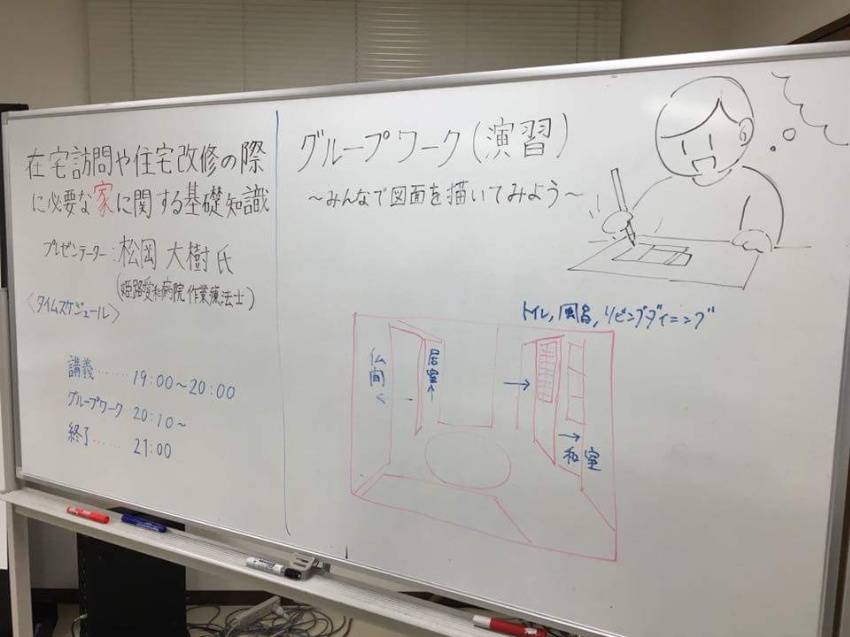 在宅訪問や住宅改修の際
に必要な家に関する基礎知識
プレゼンテーター：松岡 大樹 氏
(姫路愛和病院 作業療法士)
〈タイムスケジュール〉
講義……19:00～20:00
グループワーク 20:10～
終了…… 21:00
グループワーク(演習)
～みんなで図面を描いてみよう～
トイレ, 風呂, リビングダイニング
仏間
居室
→
→
和室